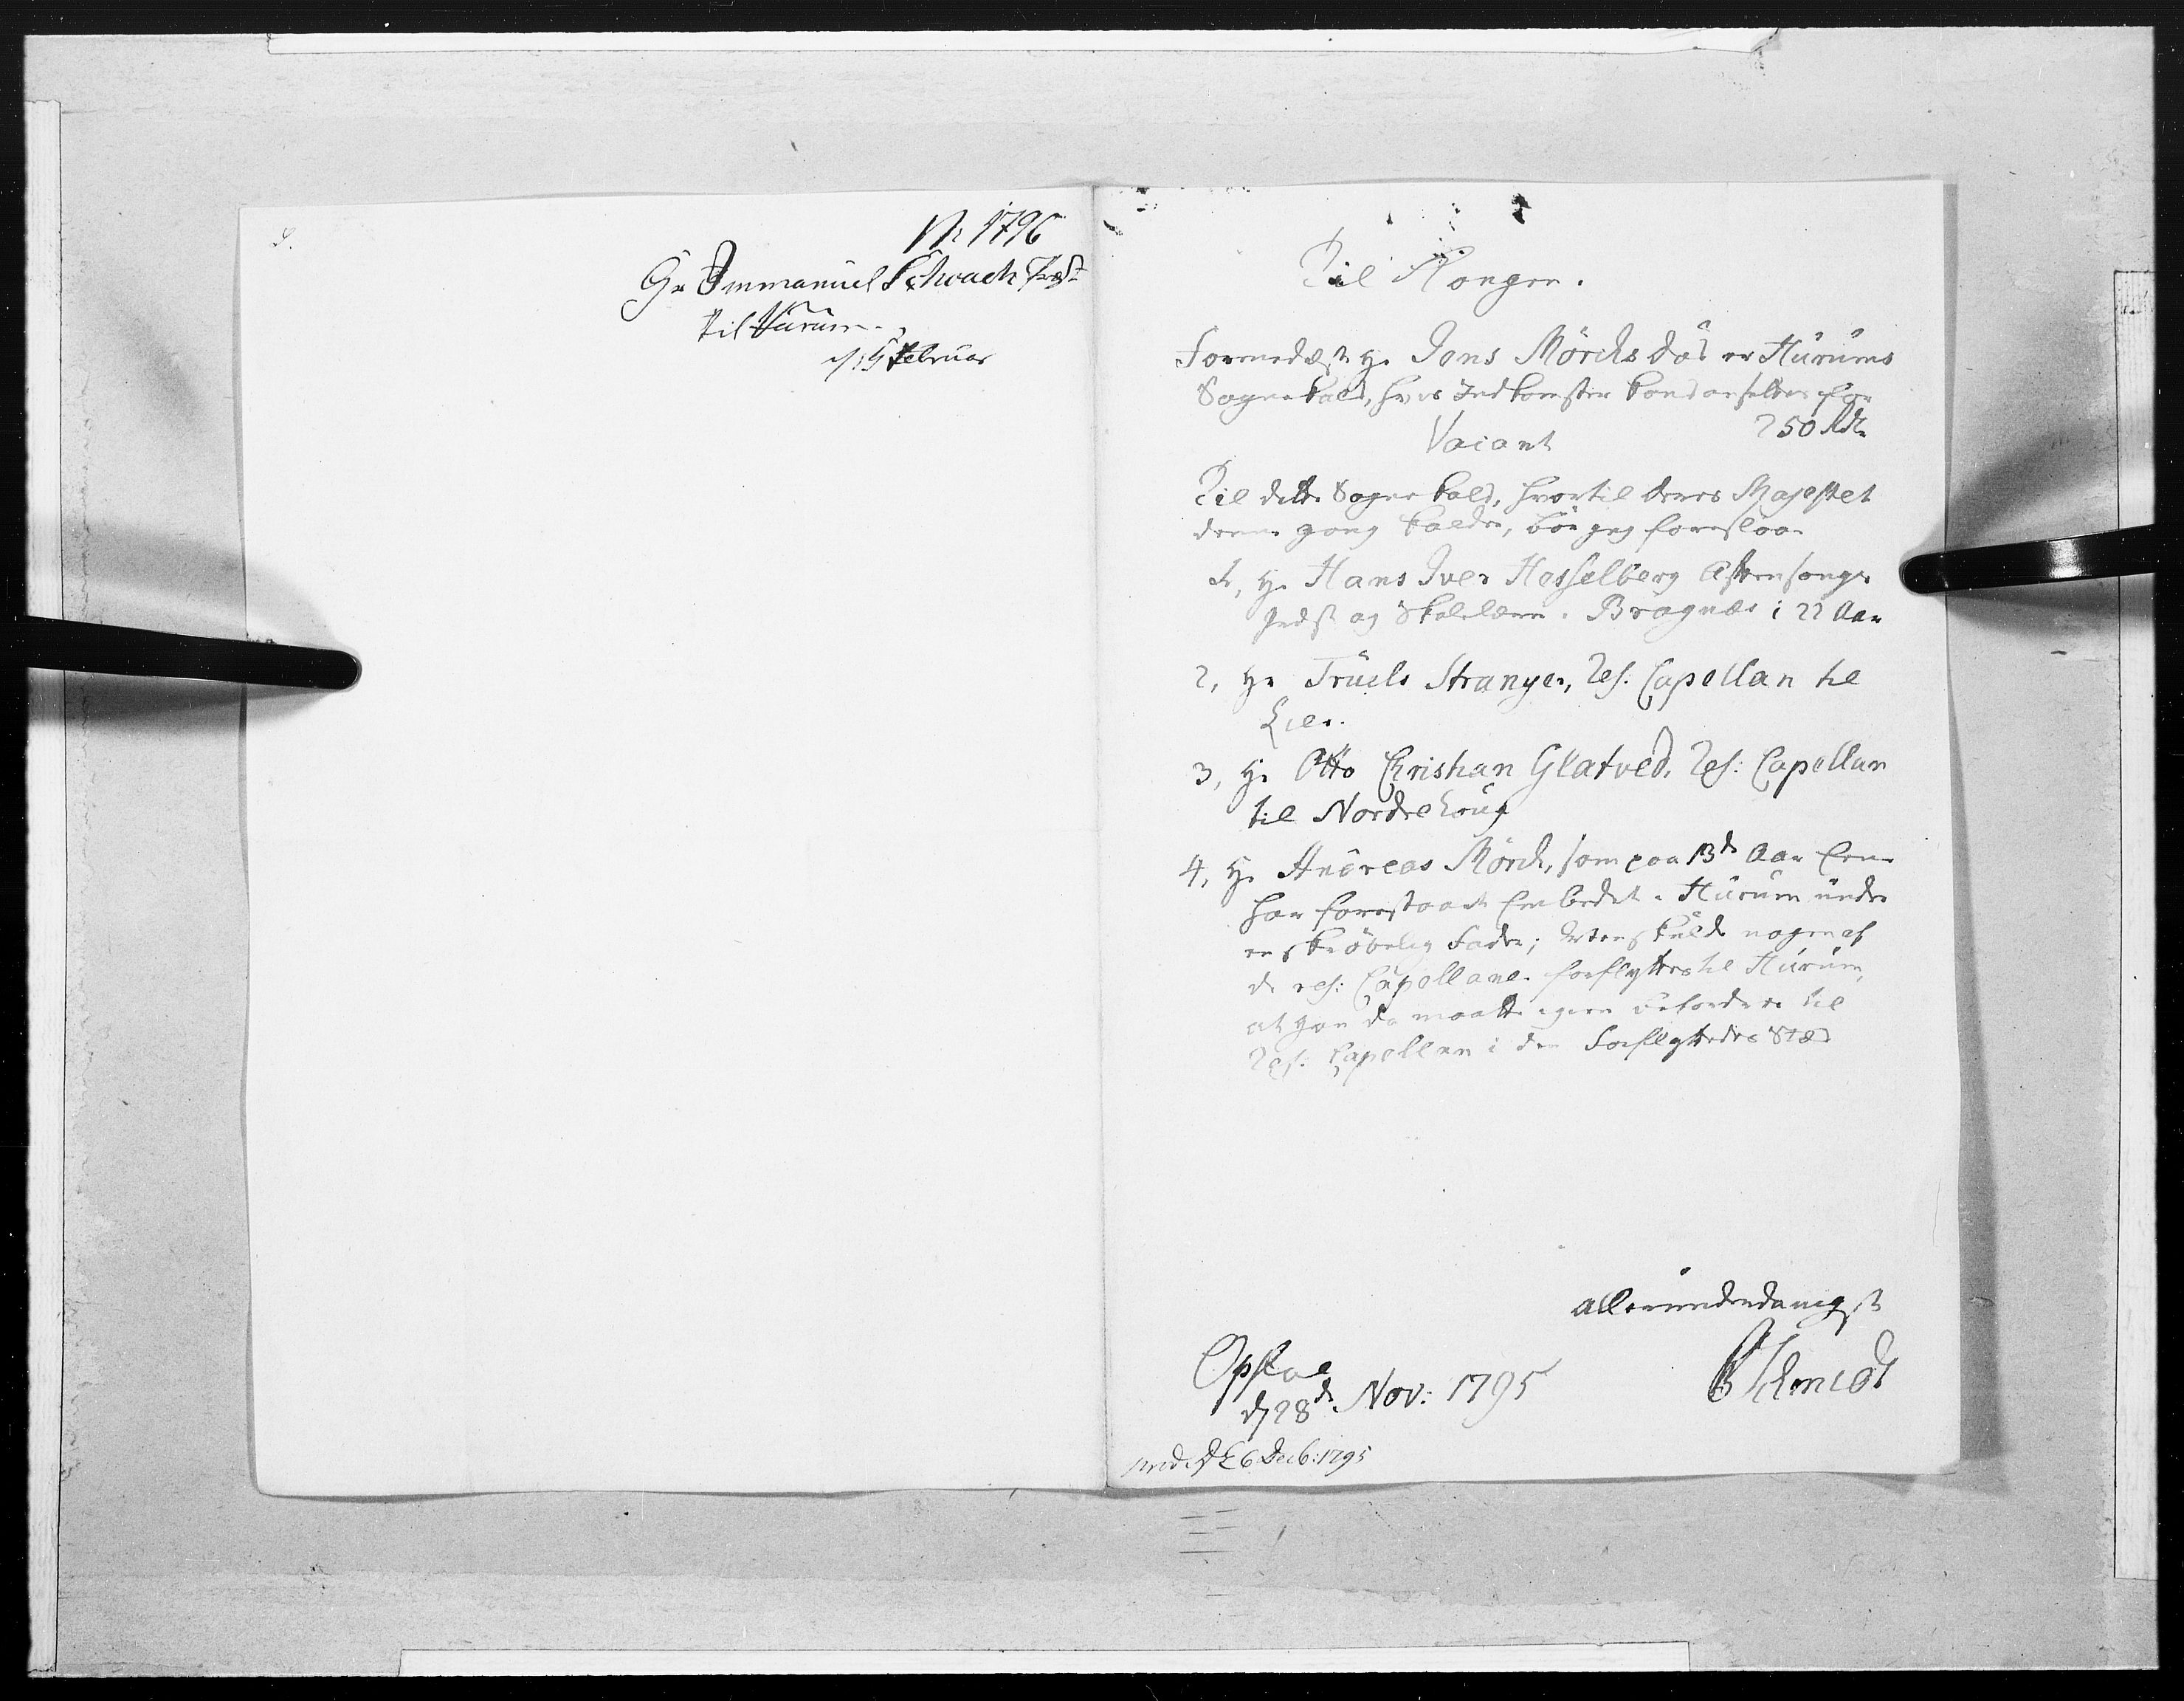 Nr 1796
Hr Immanuel Schwach Præst
til Hurum
d/ 19 Februar
Til Kongen.
Formedelst Hr Jens Mörchs död er Hurums
Sognekald, hvis Indkomster kand ansettes for
250 Rdlr
Vacant
Til dette Sognekald, hvortil Deres Majestet
denne gang kalder, bör jeg foreslaae
1, Hr Hans Iver Hesselberg Aftensangs
Præst og Skolelærer Bragnæs i 22 Aar
2, Hr Truels Stranger, Res. Capellan til
Lier.
3, Hr Otto Christian Glatved, Res: Capellan
til Nordrehoug
4, Hr Andreas Mörch, som paa 13de Aar
har forestaaet Embedet i Hurum under
en skröbelig Fader; skulde nogen af
de res: Capellaner forflyttes til Hurum,
at han da maatte igien befordres til
Res: Capellan i den Forflyttedes Stæd
allerunderdanigst
Opsloe
d/ 28de Nov: 1795
Schmidt
6 Decb: 1795